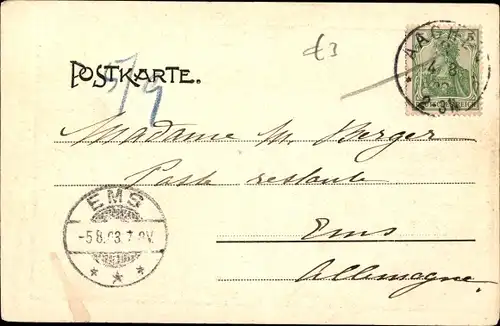 £3
POSTKARTE.
5/9
AACHEN
4.8.
REICH
Madame M. Berger
Poste restante
EMS
-5.8.03.7-8V.
Ems
Allemagne.